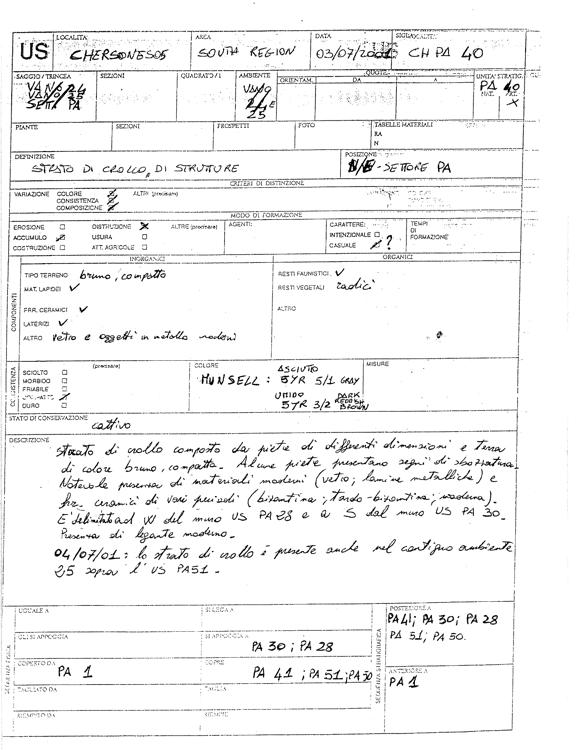 US
LOCALITÀ
CHERSONESOS
AREA
SOUTH REGION
DATA
03/07/2001
SIGLA
CH PA 40
SAGGIO/TRINCEA
SETT. PA
SEZIONI
QUADRATO/I
AMBIENTE
VANO
25
ORIENTAM.
QUOTE
DA
A
UNITÀ STRATIG.
PA 40
NAT.
ART.
X
PIANTE
SEZIONI
PROSPETTI
FOTO
TABELLE MATERIALI
RA
N
DEFINIZIONE
STRATO DI CROLLO DI STRUTTURE
POSIZIONE
- SETTORE PA
CRITERI DI DISTINZIONE
VARIAZIONE COLORE ALTRI (precisare)
CONSISTENZA
COMPOSIZIONE
MODO DI FORMAZIONE
EROSIONE DISTRUZIONE X ALTRE (precisare)
ACCUMULO USURA
COSTRUZIONE ATT. AGRICOLE
AGENTI:
CARATTERE:
INTENZIONALE
CASUALE ?
TEMPI
DI
FORMAZIONE
COMPONENTI
INORGANICI
ORGANICI
TIPO TERRENO bruno, compatto
MAT. LAPIDEI ✓
FRR. CERAMICI ✓
LATERIZI ✓
ALTRO vetro e oggetti in metallo moderni
RESTI FAUNISTICI ✓
RESTI VEGETALI radici
ALTRO
CONSISTENZA
(precisare)
SCIOLTO
MORBIDO
FRIABILE
DURO
COLORE
MUNSELL: ASCIUTO
5YR 5/1 GRAY
UMIDO
5YR 3/2 DARK REDDISH BROWN
MISURE
STATO DI CONSERVAZIONE
cattivo
DESCRIZIONE
strato di crollo composto da pietre di differenti dimensioni e terra
di colore bruno, compatta. Alcune pietre presentano segni di sbozzatura.
Notevole presenza di materiali moderni (vetro; lamine metalliche) e
frr. ceramici di vari periodi (bizantina; tardo-bizantina; moderna).
È delimitato ad W dal muro US PA28 e a S dal muro US PA 30.
Presenza di legante moderno.
04/07/01: lo strato di crollo è presente anche nel contiguo ambiente
25 sopra l'US PA51.
SEQUENZA FISICA
UGUALE A
SI LEGA A
GLI SI APPOGGIA
SI APPOGGIA
PA 30; PA 28
COPERTO DA
PA 1
COPRE
PA 41; PA 51; PA 50
TAGLIATO DA
TAGLIA
RIEMPITO DA
RIEMPIE
SEQUENZA STRATIGRAFICA
POSTERIORE A
PA41; PA 30; PA 28
PA 51; PA 50.
ANTERIORE A
PA 1